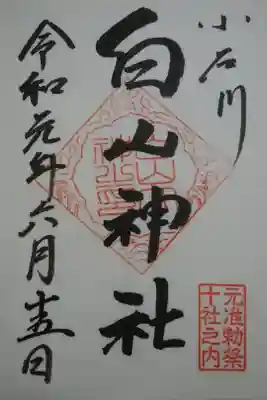 小石川
白山神社
令和元年六月十五日
元准勅祭
十社之内